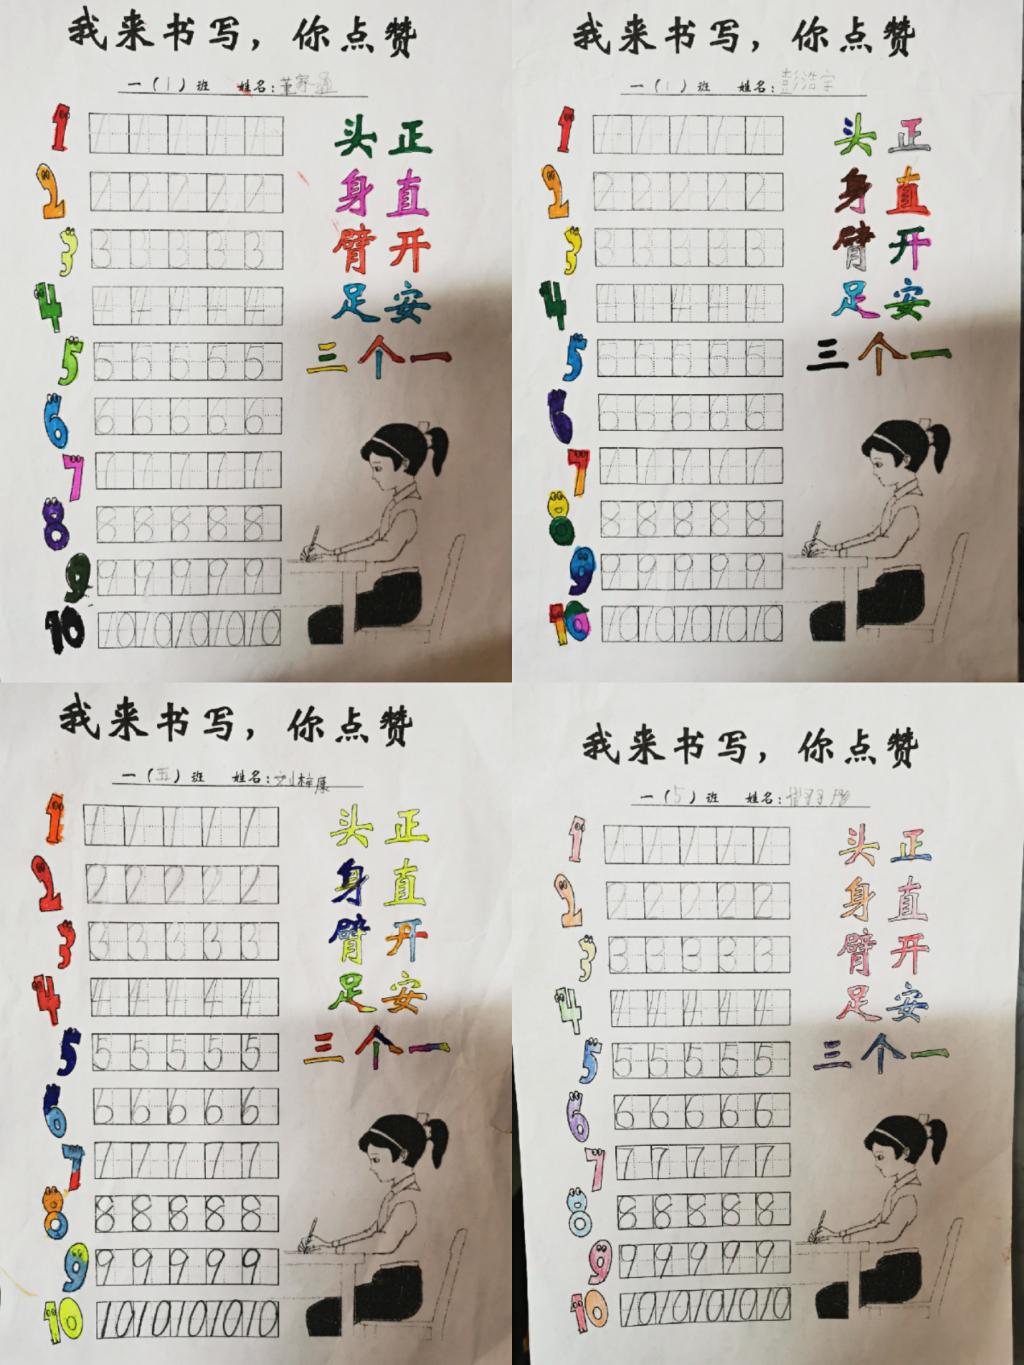 我来书写，你点赞
一（1）班 姓名：董
1 1 1 1 1 1 头正
2 2 2 2 2 2 身直
3 3 3 3 3 3 臂开
4 4 4 4 4 4 足安
5 5 5 5 5 5 三个一
6 6 6 6 6 6
7 7 7 7 7 7
8 8 8 8 8 8
9 9 9 9 9 9
10 10 10 10 10 10
我来书写，你点赞
一（1）班 姓名：彭浩宇
1 1 1 1 1 1 头正
2 2 2 2 2 2 身直
3 3 3 3 3 3 臂开
4 4 4 4 4 4 足安
5 5 5 5 5 5 三个一
6 6 6 6 6 6
7 7 7 7 7 7
8 8 8 8 8 8
9 9 9 9 9 9
10 10 10 10 10 10
我来书写，你点赞
一（五）班 姓名：刘梓康
1 1 1 1 1 1 头正
2 2 2 2 2 2 身直
3 3 3 3 3 3 臂开
4 4 4 4 4 4 足安
5 5 5 5 5 5 三个一
6 6 6 6 6 6
7 7 7 7 7 7
8 8 8 8 8 8
9 9 9 9 9 9
10 10 10 10 10 10
我来书写，你点赞
一（5）班 姓名：
1 1 1 1 1 1 头正
2 2 2 2 2 2 身直
3 3 3 3 3 3 臂开
4 4 4 4 4 4 足安
5 5 5 5 5 5 三个一
6 6 6 6 6 6
7 7 7 7 7 7
8 8 8 8 8 8
9 9 9 9 9 9
10 10 10 10 10 10